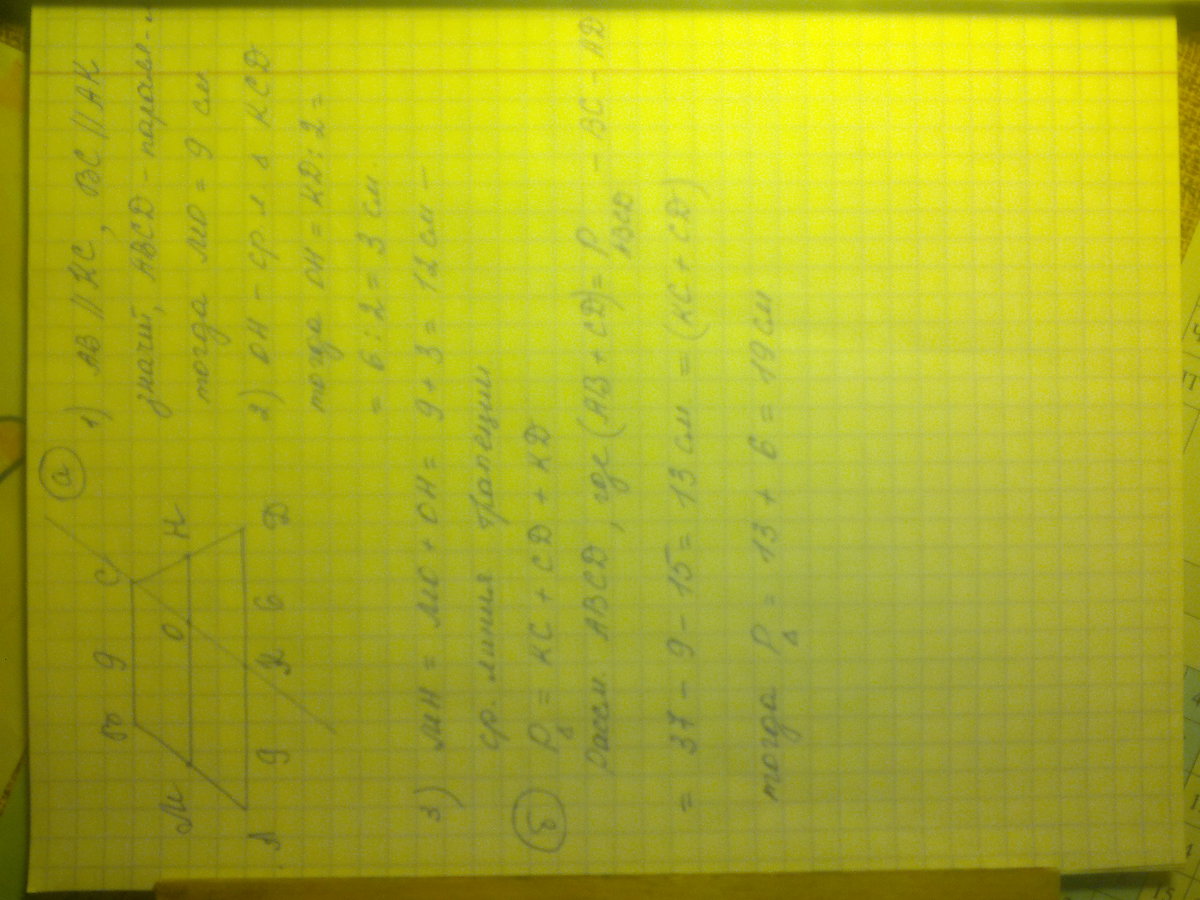 а
1) AB || KC, BC || AK
значит, ABCD - паралл-м
тогда MO = 9 см
2) OH - ср. л. Δ KCD
тогда OH = KD : 2 =
= 6 : 2 = 3 см
M B 9 C
O H
A 9 K 6 D
3) MH = MO + OH = 9 + 3 = 12 см -
ср. линия трапеции
б
PΔ = KC + CD + KD
Рассм. ABCD, где (AB + CD) = P ABCD - BC - AD
= 37 - 9 - 15 = 13 см = (KC + CD)
тогда PΔ = 13 + 6 = 19 см